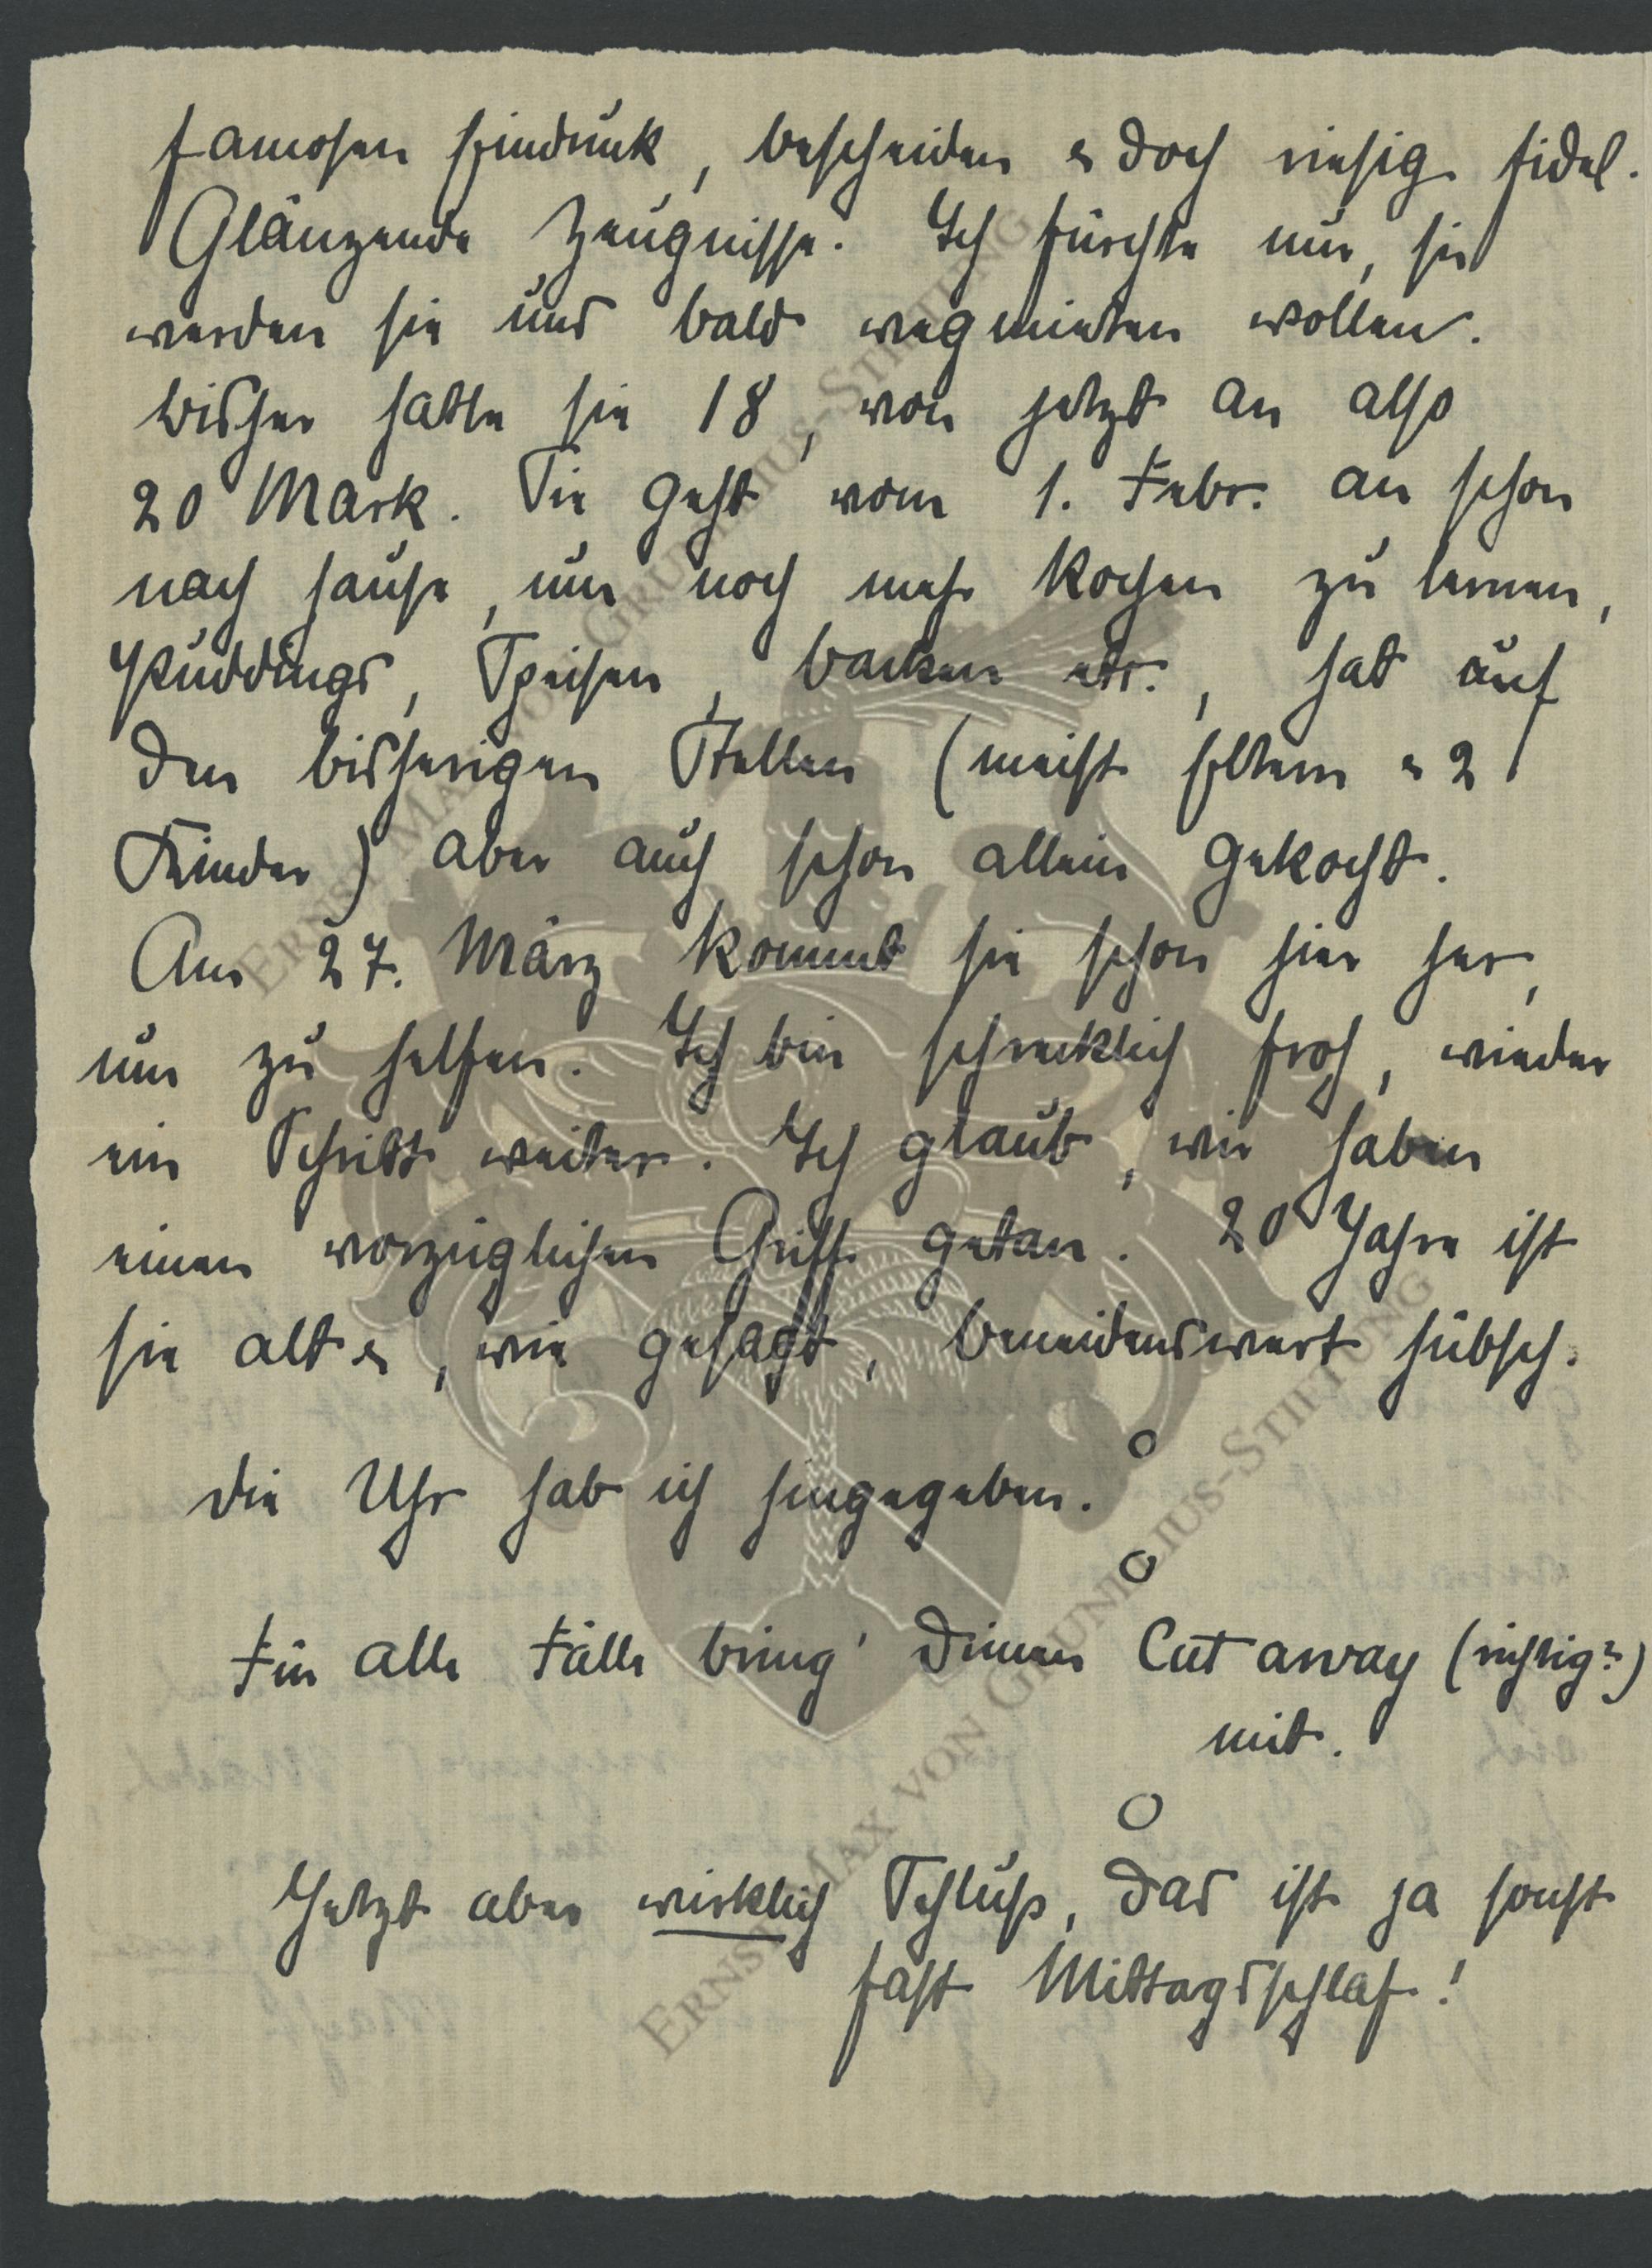 famosen Eindruck, bescheiden & doch riesig fidel.
Glänzende Zeugnisse. Ich fürchte nur, sie
werden sie uns bald wegmieten wollen.
bisher hatte sie 18, von jetzt an also
20 Mark. Sie geht vom 1. Febr. an schon
nach Hause, um noch mehr kochen zu lernen,
Puddings, Speisen, backen etc., hat auf
den bisherigen Stellen (meist Eltern & 2
Kinder) aber auch schon allein gekocht.
Am 27. März kommt sie schon hier her,
um zu helfen. Ich bin schrecklich froh, wieder
ein Schritt weiter. Ich glaub, wir haben
einen vorzüglichen Griff getan. 20 Jahre ist
sie alt &, wie gesagt, beneidenswert hübsch.
o
die Uhr hab ich hingegeben.
o
Für alle Fälle bring' Deinen Cut away (richtig?)
mit.
o
Jetzt aber wirklich Schluß, das ist ja sonst
fast Mittagsschlaf!
ERNST MAX VON GRUNELIUS-STIFTUNG
ERNST MAX VON GRUNELIUS-STIFTUNG